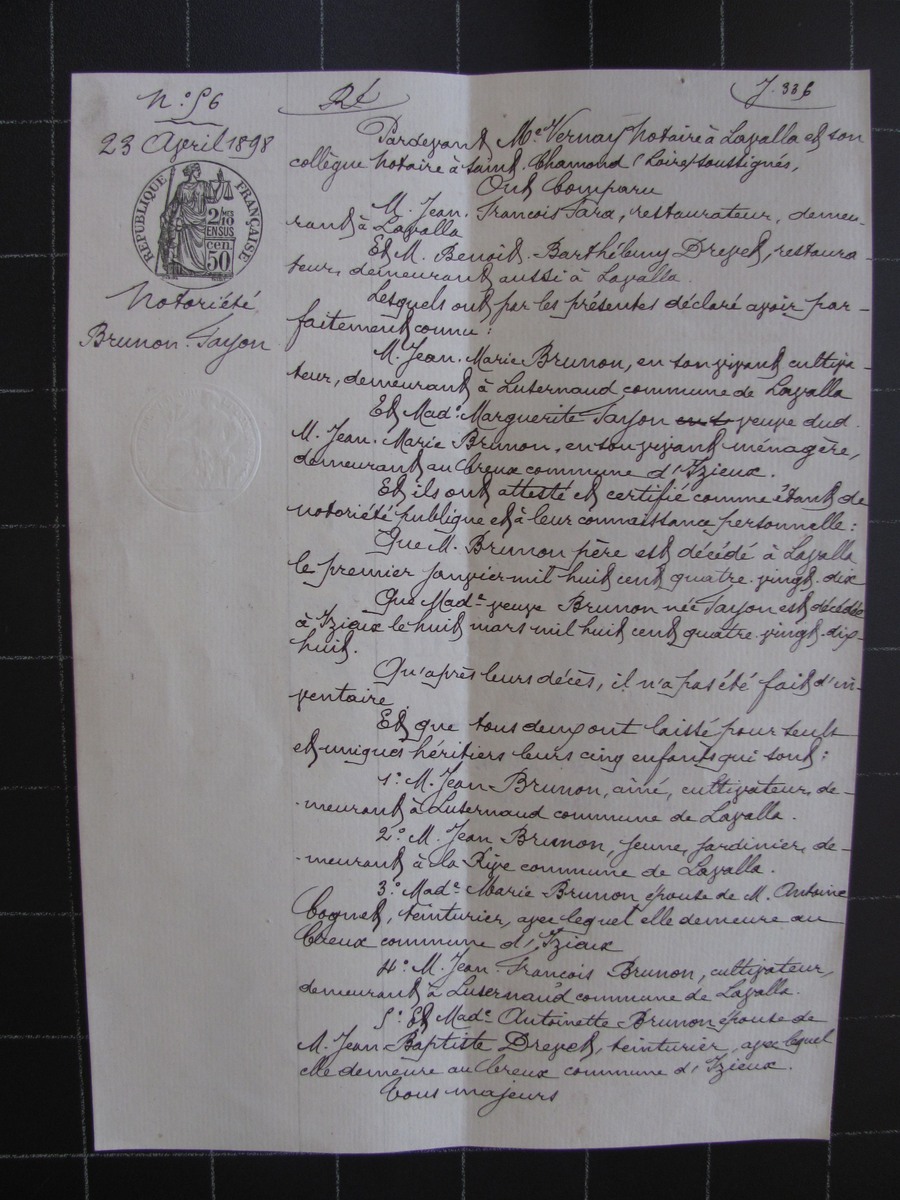 N.° 56
Rt
J. 336
23 Avril 1898
RÉPUBLIQUE FRANÇAISE
2/10 EN SUS
50 cen.
Notoriété
Brunon-Tayon
Pardevant Me Vernay notaire à Lavalla et son
collègue notaire à Saint-Chamond (Loire) soussignés,
Ont Comparu
M. Jean-François Tara, restaurateur, demeu-
rant à Lavalla
Et M. Benoit-Barthélemy Drevet, restaura-
teur, demeurant aussi à Lavalla.
Lesquels ont par les présentes déclaré avoir par-
faitement connu:
M. Jean-Marie Brunon, en son vivant cultiva-
teur, demeurant à Lusernaud commune de Lavalla
Et Made Marguerite Tayon veuve dud.
M. Jean-Marie Brunon, en son vivant ménagère,
demeurant au Creux commune d'Izieux.
Et ils ont attesté et certifié comme étant de
notoriété publique et à leur connaissance personnelle:
Que M. Brunon père est décédé à Lavalla
le premier janvier mil huit cent quatre-vingt-dix
Que Made veuve Brunon née Tayon est décédée
à Izieux le huit mars mil huit cent quatre-vingt-dix-
huit.
Qu'après leurs décès, il n'a pas été fait d'in-
ventaire.
Et que tous deux ont laissé pour seuls
et uniques héritiers leurs cinq enfants qui sont:
1.° M. Jean Brunon, ainé, cultivateur, de-
meurant à Lusernaud commune de Lavalla.
2.° M. Jean Brunon, jeune, jardinier, de-
meurant à la Rive commune de Lavalla.
3.° Made Marie Brunon épouse de M. Antoine
Cognet, teinturier, avec lequel elle demeure au
Creux commune d'Izieux
4.° M. Jean-François Brunon, cultivateur,
demeurant à Lusernaud commune de Lavalla.
5.° Et Made Antoinette Brunon épouse de
M. Jean-Baptiste Drevet, teinturier, avec lequel
elle demeure au Creux commune d'Izieux.
Tous majeurs